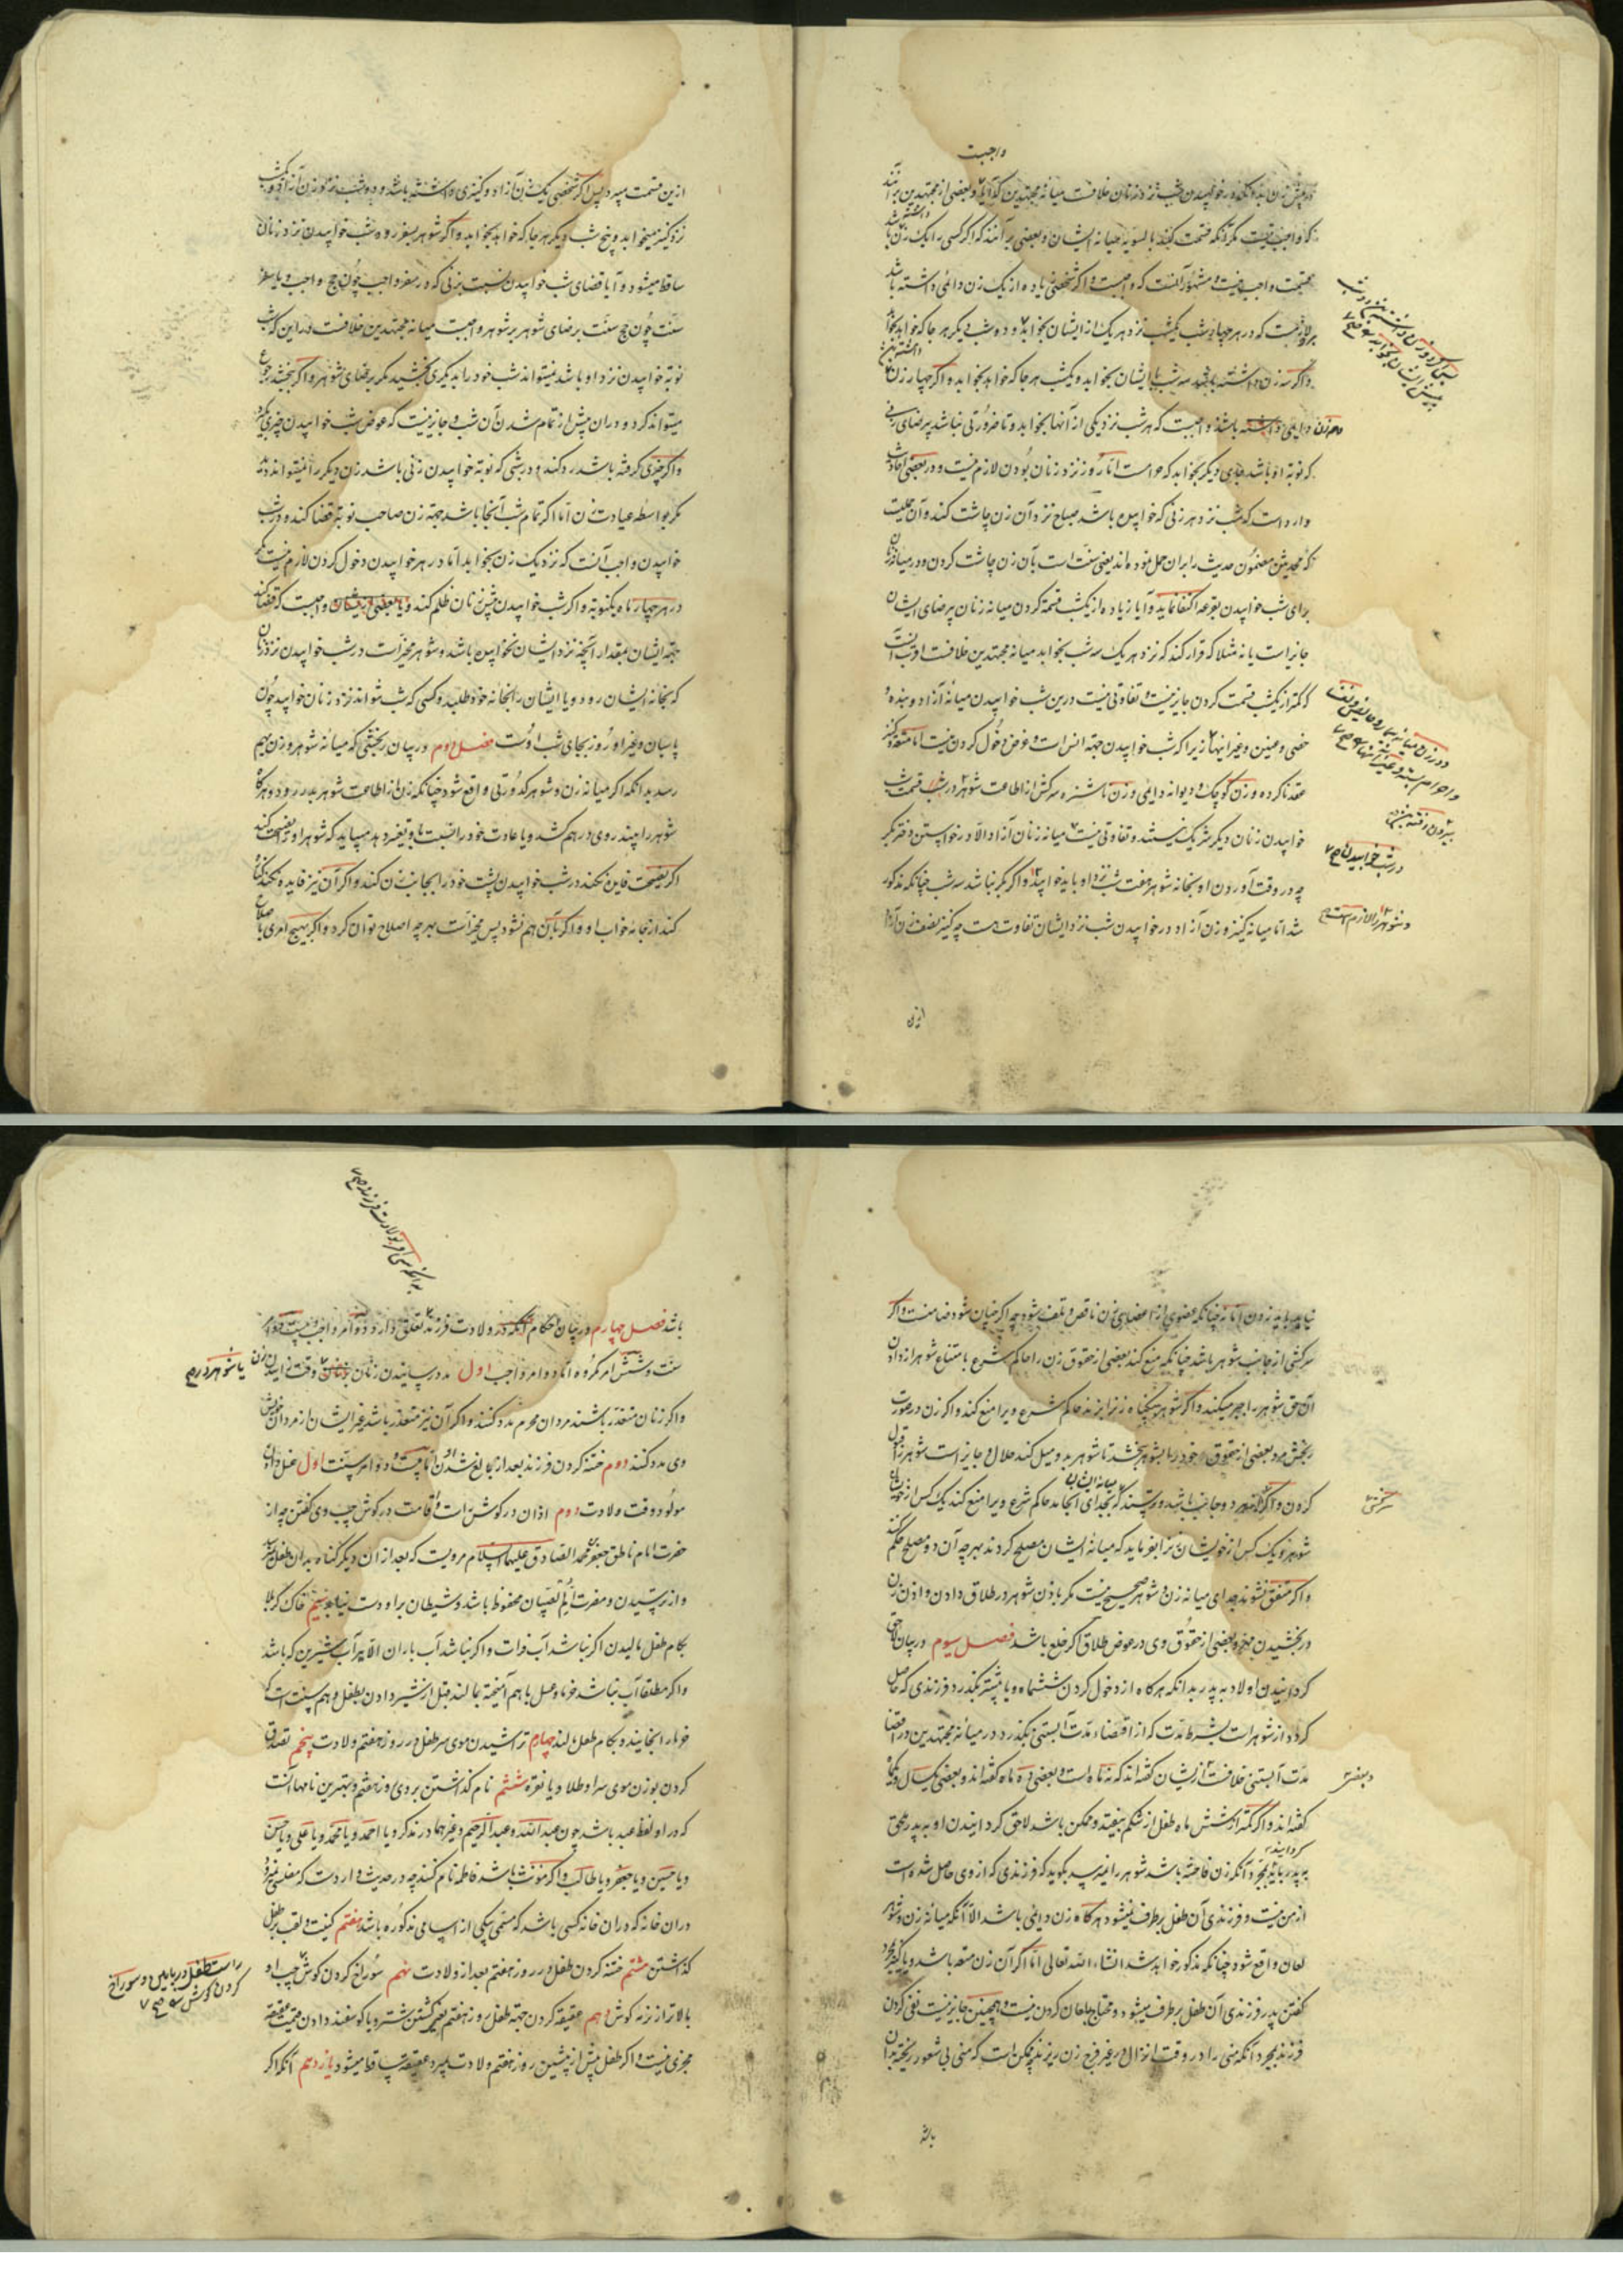 واجبست
که واجب نیست مگر آنکه قسمت کند بالسویه میانه ایشان و بعضی برآنند که اگر کسی را یک زن باشد
قسمت واجب نیست و مشهور آنست که واجبست و اگر شخصی زیاده از یک زن دائمی داشته باشد
برو لازمست که در هر چهار شب یکشب نزد هر یک از ایشان بخوابد و شب دیگر هر جا که خواهد بخوابد
و اگر سه زن داشته باشد سه شب با ایشان بخوابد و یکشب هر جا که خواهد بخوابد و اگر چهار زن
دایمی داشته باشد واجبست که هر شب نزد یکی از آنها بخوابد و تا ضرورتی نباشد بی رضای زنی
که نوبه او باشد جای دیگر بخوابد که حرامست اما روز نزد زنان بودن لازم نیست و در بعضی احادیث
وارد است که شب نزد هر زنی که خوابیده باشد صباح نزد آن زن چاشت کند و ابن جنید
که مجتهدین مضمون حدیث را بران حمل نموده اند یعنی سنت است بآن زن چاشت کردن و در میانه زنان
برای شب خوابیدن بقرعه اکتفا نماید و آیا زیاده از یکشب قسمت کردن میانه زنان بی رضای ایشان
جایز است یا نه مثلا که قرار کند که نزد هر یک سه شب بخوابد میانه مجتهدین خلافست
که کمتر از یکشب قسمت کردن جایز نیست و تفاوتی نیست درین شب خوابیدن میانه آزاد و بنده و
خصی و عنین و غیر اینها زیرا که شب خوابیدن جهة انس است و غرض دخول کردن نیست اما متعه و کنیز
عقد ناکرده و زن کوچک و دیوانه دایمی و زن ناشزه سرکش از اطاعت شوهر در شب قسمت شب
خوابیدن زنان دیگر شریک نیستند و تفاوتی نیست میانه زنان آزاد الا در خواستن دختر بکر
چه در وقت آوردن او بخانه شوهر هفت شب نزد او باید خوابید و اگر بکر نباشد سه شب چنانکه مذکور
شد اما میانه کنیز و زن آزاد در خوابیدن شب نزد ایشان تفاوت هست چه کنیز نصف زن آزاد
در شب خوابیدن
و شوهر را لازم است
ازین
ازین قسمت میبرد پس اگر شخصی یک زن آزاد و کنیزی داشته باشد دو شب نزد زن آزاد و یکشب
نزد کنیز میخوابد و پنج شب دیگر هر جا که خواهد بخوابد و اگر شوهر بسفر رود شب خوابیدن نزد زنان
ساقط میشود و آیا قضای شب خوابیدن نسبت بزنی که در سفر واجب چون حج واجب و یا سفر
سنت چون حج سنت برضای شوهر بر شوهر واجبست میانه مجتهدین خلافست و زن این که شب
نوبه خوابیدن نزد او باشد نمیتواند شب خود را بدیگری بخشید مگر برضای شوهر و اگر بخشد رجوع
میتواند کرد در آن پیش از تمام شدن آن شب و جایز نیست که عوض شب خوابیدن چیزی بگیرد
و اگر چیزی گرفته باشد رد کند و در شبی که نوبه خوابیدن زنی باشد زن دیگر را نمیتواند دید
مگر بواسطه عیادت آن اما اگر تمام شب آنجا باشد جهة زن صاحب نوبه قضا کند و در شب
خوابیدن واجب آنست که نزدیک زن بخوابد اما در هر خوابیدن دخول کردن لازم نیست مگر
در هر چهار ماه یکنوبه و اگر شب خوابیدن پیش زنان ظلم کند و یا بعضی از ایشان واجبست که قضا کند
جهة ایشان بمقدار آنچه نزد ایشان نخوابیده باشد و شوهر مخیر است در شب خوابیدن نزد زنان
که بخانه ایشان رود و یا ایشان را بخانه خود طلبد و کسی که شب نتواند نزد زنان خوابید چون
پاسبان و غیر او روز بجای شب اوست فصل دوم در بیان رنجشی که میانه شوهر و زن بهم
رسد بدانکه اگر میانه زن و شوهر کدورتی واقع شود چنانکه زن از اطاعت شوهر بدر رود و هرگاه
شوهر را بیند روی در هم کشد و یا عادت خود را نسبت باو تغییر دهد میباید که شوهر او را نصیحت کند
اگر نصیحت فایده نکند در شب خوابیدن پشت خود را بجانب زن کند و اگر آن نیز فایده نکند کناره
کند از جامه خواب او و اگر بآن هم نشود پس مخیر است بهر چه اصلاح توان کرد و اگر بهیچ امری باصلاح
نیاید باید زدن اما نه چنانکه عضوی از اعضای زن ناقص و تلف شود چه اگر چنان شود ضامنست و اگر
سرکشی از جانب شوهر باشد چنانکه منع کند بعضی از حقوق زن را حاکم شرع بامتناع شوهر از دادن
آن حق شوهر را جبر میکند و اگر شوهر بیگناه زن را بزند حاکم شرع ویرا منع کند و اگر زن در صورت
رنجش مرد بعضی از حقوق خود را بشوهر بخشد تا شوهر بدو میل کند حلال و جایز است شوهر را قبول
کردن و اگر از هر دو جانب باشد و ترسند که بجدای انجامد حاکم شرع ویرا منع کند یک کس از خویشان
شوهر و یک کس از خویشان زن را بفرماید که میانه ایشان مصلح گردند بهر چه آن دو مصلح حکم کنند
و اگر متفق نشوند جدای میانه زن و شوهر صحیح نیست مگر باذن شوهر در طلاق دادن و اذن زن
در بخشیدن مهر و بعضی از حقوق وی در عوض طلاق اگر خلع باشد فصل سیوم در بیان لاحق
گردانیدن اولاد به پدر بدانکه هرگاه از دخول کردن ششماه و یا بیشتر بگذرد فرزندی که حاصل
گردد از شوهر است بشرط مدت که از اقصاء مدت آبستنی بگذرد و در میانه مجتهدین در اقصا
مدت آبستنی خلافست ازیشان گفته اند که نه ماه است و بعضی ده ماه گفته اند و بعضی یکسال و یکماه
گفته اند و اگر کمتر از شش ماه طفل از شکم بیفتد و ممکن باشد لاحق گردانیدن او به پدر ملحق
به پدر باید بمجرد آنکه زن فاحشه باشد شوهر را نمیرسد بگوید که فرزندی که از وی حاصل شده است
از من نیست و فرزندی آن طفل برطرف نمیشود هرگاه زن دایمی باشد الا آنکه میانه زن و شوهر
لعان واقع شود چنانکه مذکور خواهد شد انشاء الله تعالی اما اگر آن زن متعه باشد و یا کنیز بمجرد
گفتن پدر فرزندی آن طفل برطرف میشود و محتاج بلعان کردن نیست و همچنین جایز نیست نفی کردن
فرزند بمجرد آنکه منی را در وقت انزال در غیر فرج زن ریزند چه ممکن است که منی بی شعور ریخته
باشد
باشد فصل چهارم در بیان احکام آنکه در ولادت فرزند تعلق دارد دو امر واجب و بیست و دو امر
سنت و شش امر مکروه اما دو امر واجب اول مدد رسانیدن زنان وقت زائیدن زن
یا شوهر
و اگر زنان متعذر باشند مردان محرم مدد کنند و اگر آن نیز متعذر باشد غیر ایشان از مردان خویش
وی مدد کنند دوم ختنه کردن فرزند بعد از بالغ شدن او اما بیست و دو امر سنت اول غسل دادن
مولود وقت ولادت دوم اذان در گوش راست و اقامت در گوش چپ وی گفتن چه از
حضرت امام ناطق جعفر بن محمد الصادق علیهما السلام مرویست که بعد از آن دیگر گناه بدان طفل نرسد
و از ترسیدن و مضرت ام الصبیان محفوظ باشد و شیطان برو دست نیابد سیم خاک کربلا
بکام طفل مالیدن اگر نباشد آب فرات و اگر نباشد آب باران الا بهر آب شیرین که باشد
و اگر مطلقا آب نباشد خرما و عسل با هم آمیخته بمالند قبل از شیر دادن بطفل و هم سنت است که
خرما را بخایند و بکام طفل مالند چهارم تراشیدن موی سر طفل در روز هفتم ولادت پنجم تصدق
کردن بوزن موی سر او طلا و یا نقره ششم نام گذاشتن بر وی روز هفتم و بهترین نامها آنست
که در او لفظ عبد باشد چون عبدالله و عبدالرحیم و غیرهما در مذکر و یا احمد و یا محمد و یا علی و یا حسن
و یا حسین و یا جعفر و یا طالب و اگر مؤنث باشد فاطمه نام کنند چه در حدیث وارد است که مفلسی نمیرود
در آن خانه که در آن خانه کسی باشد که مسمی بیکی از اسامی مذکوره باشد هفتم کنیت و لقب بر طفل
گذاشتن هشتم ختنه کردن طفل در روز هفتم بعد از ولادت نهم سوراخ کردن گوش چپ او
بالاتر از نرمه گوش دهم عقیقه کردن جهة طفل روز هفتم یعنی کشتن شتر و یا گوسفند و دادن قیمت عقیقه
مجزی نیست و اگر طفل پیش از پیشین روز هفتم ولادت بمیرد عقیقه ساقط میشود یازدهم آنکه اگر